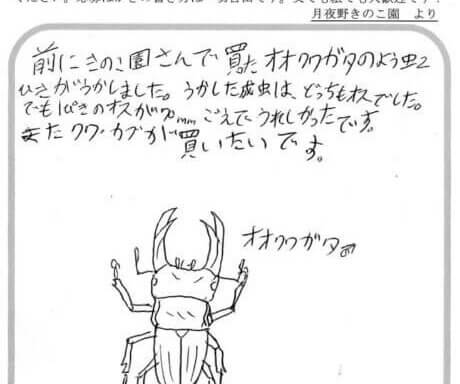 月夜野きのこ園　より
前にきのこ園さんで買ったオオクワガタのよう虫2
ひきがうかしました。うかした成虫は、どっちもオスでした。
でも1ぴきのオスが70mmごえでうれしかったです。
またクワ・カブが買いたいです。
オオクワガタ♂